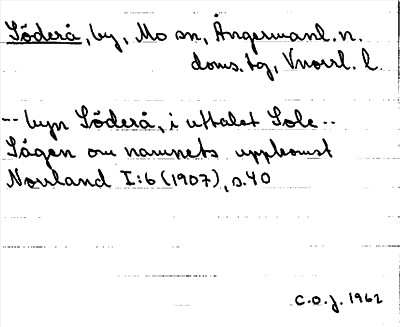 Söderå, by, Mo sn, Ångermanl. n.
doms. tg, Vnorrl. l.
-- byn Söderå, i uttalet Sole --
Sägen om namnets uppkomst
Norrland I:6 (1907), s. 40
C.O.J. 1962